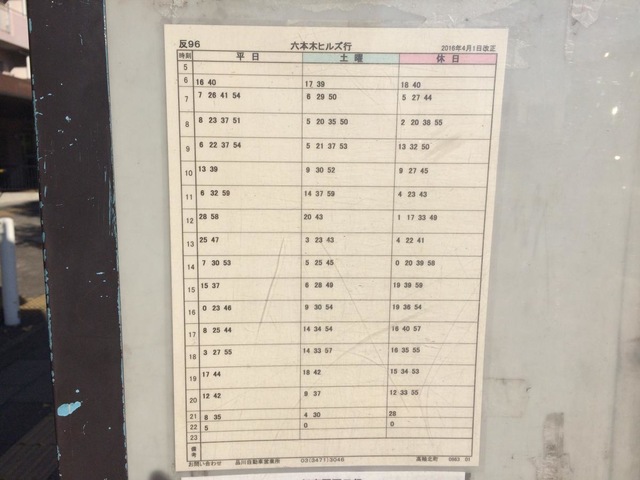 反96 六本木ヒルズ行 2016年4月1日改正
時刻 平日 土曜 休日
5
6 16 40 17 39 18 40
7 7 26 41 54 6 29 50 5 27 44
8 8 23 37 51 5 20 35 50 2 20 38 55
9 6 22 37 54 5 21 37 53 13 32 50
10 13 39 9 30 52 9 27 45
11 6 32 59 14 37 59 4 23 43
12 28 58 20 43 1 17 33 49
13 25 47 3 23 43 4 22 41
14 7 30 53 5 25 45 0 20 39 58
15 15 37 6 28 49 19 39 59
16 0 23 46 9 30 54 19 36 54
17 8 25 44 14 34 54 16 40 57
18 3 27 55 14 33 57 16 35 55
19 17 44 18 42 15 34 53
20 12 42 9 37 12 33 55
21 8 35 4 30 28
22 5 0 0
23
備考
お問い合わせ 品川自動車営業所 03(3471)3046 高輪北町 0863 01